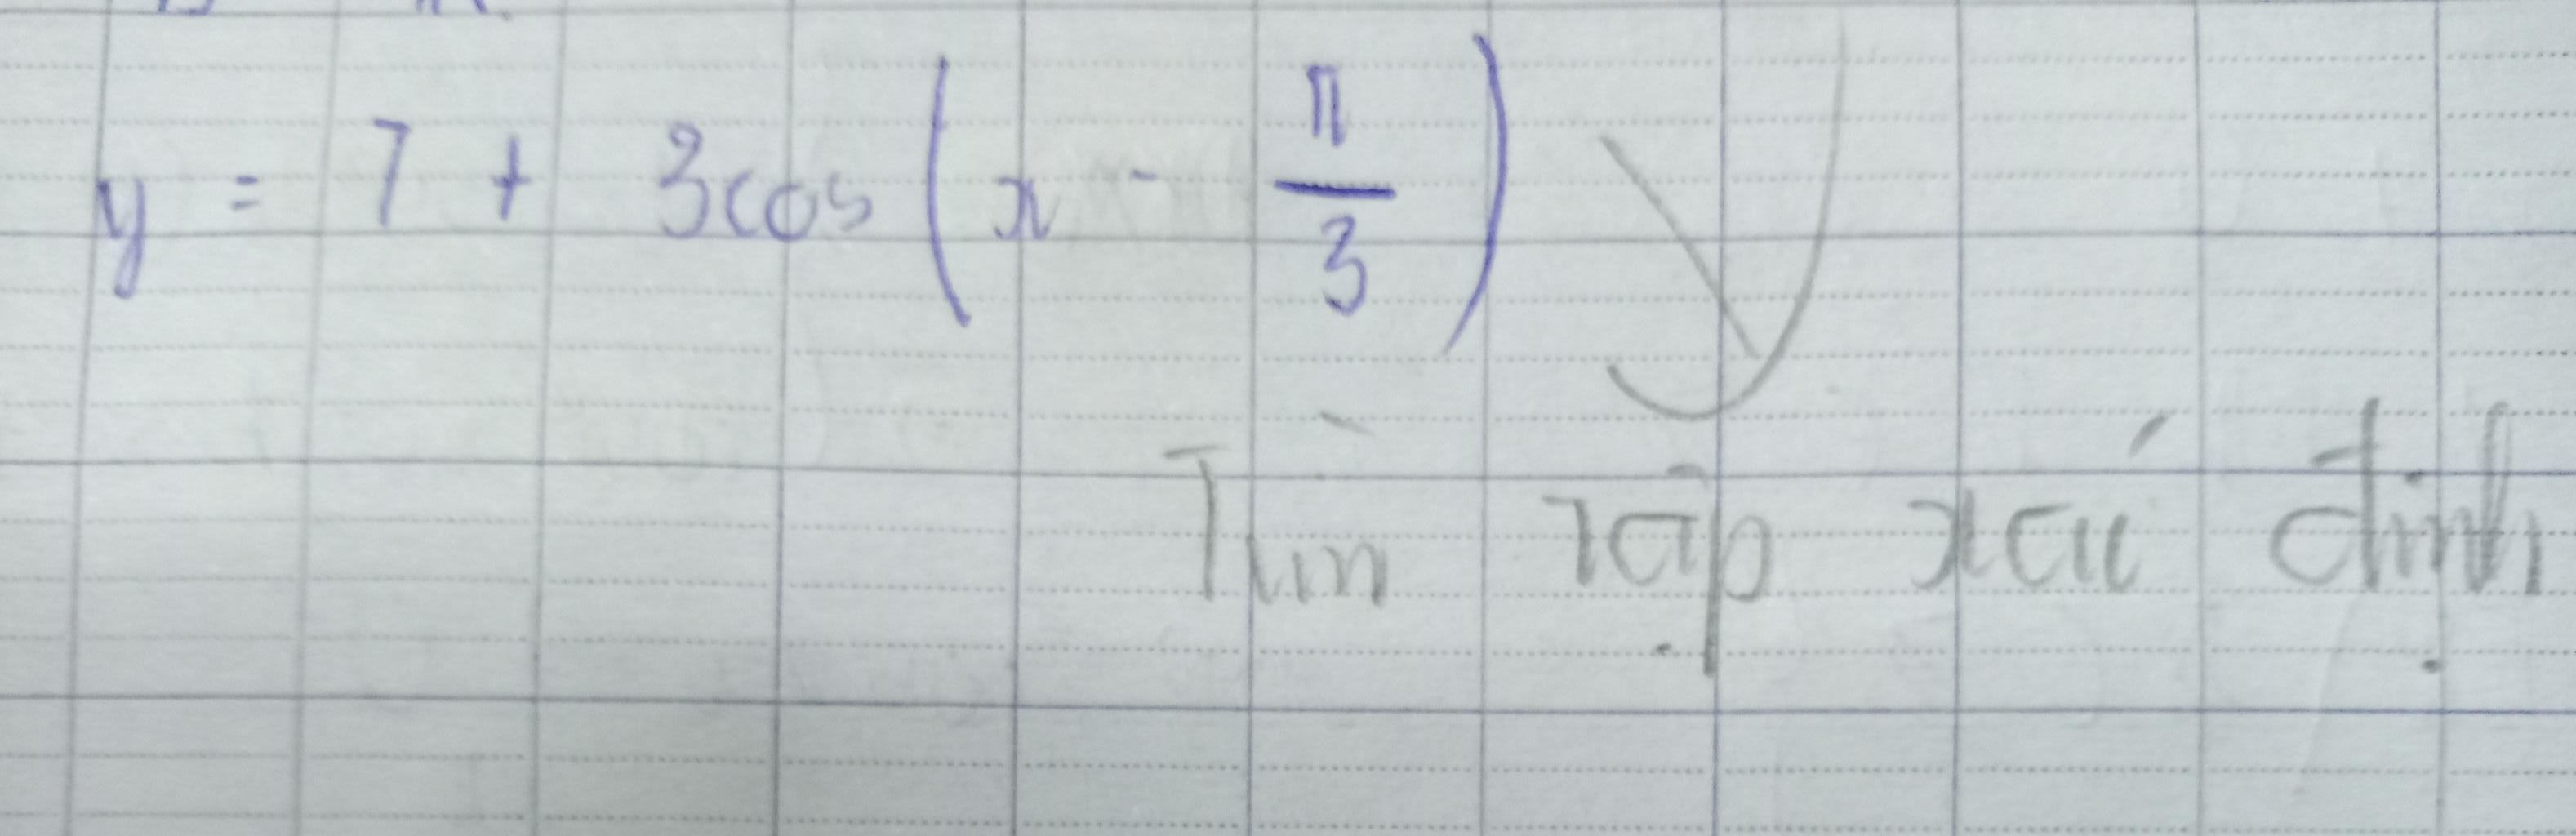 y = 7 + 3cos(x - π/3)
Tìm tập xác định